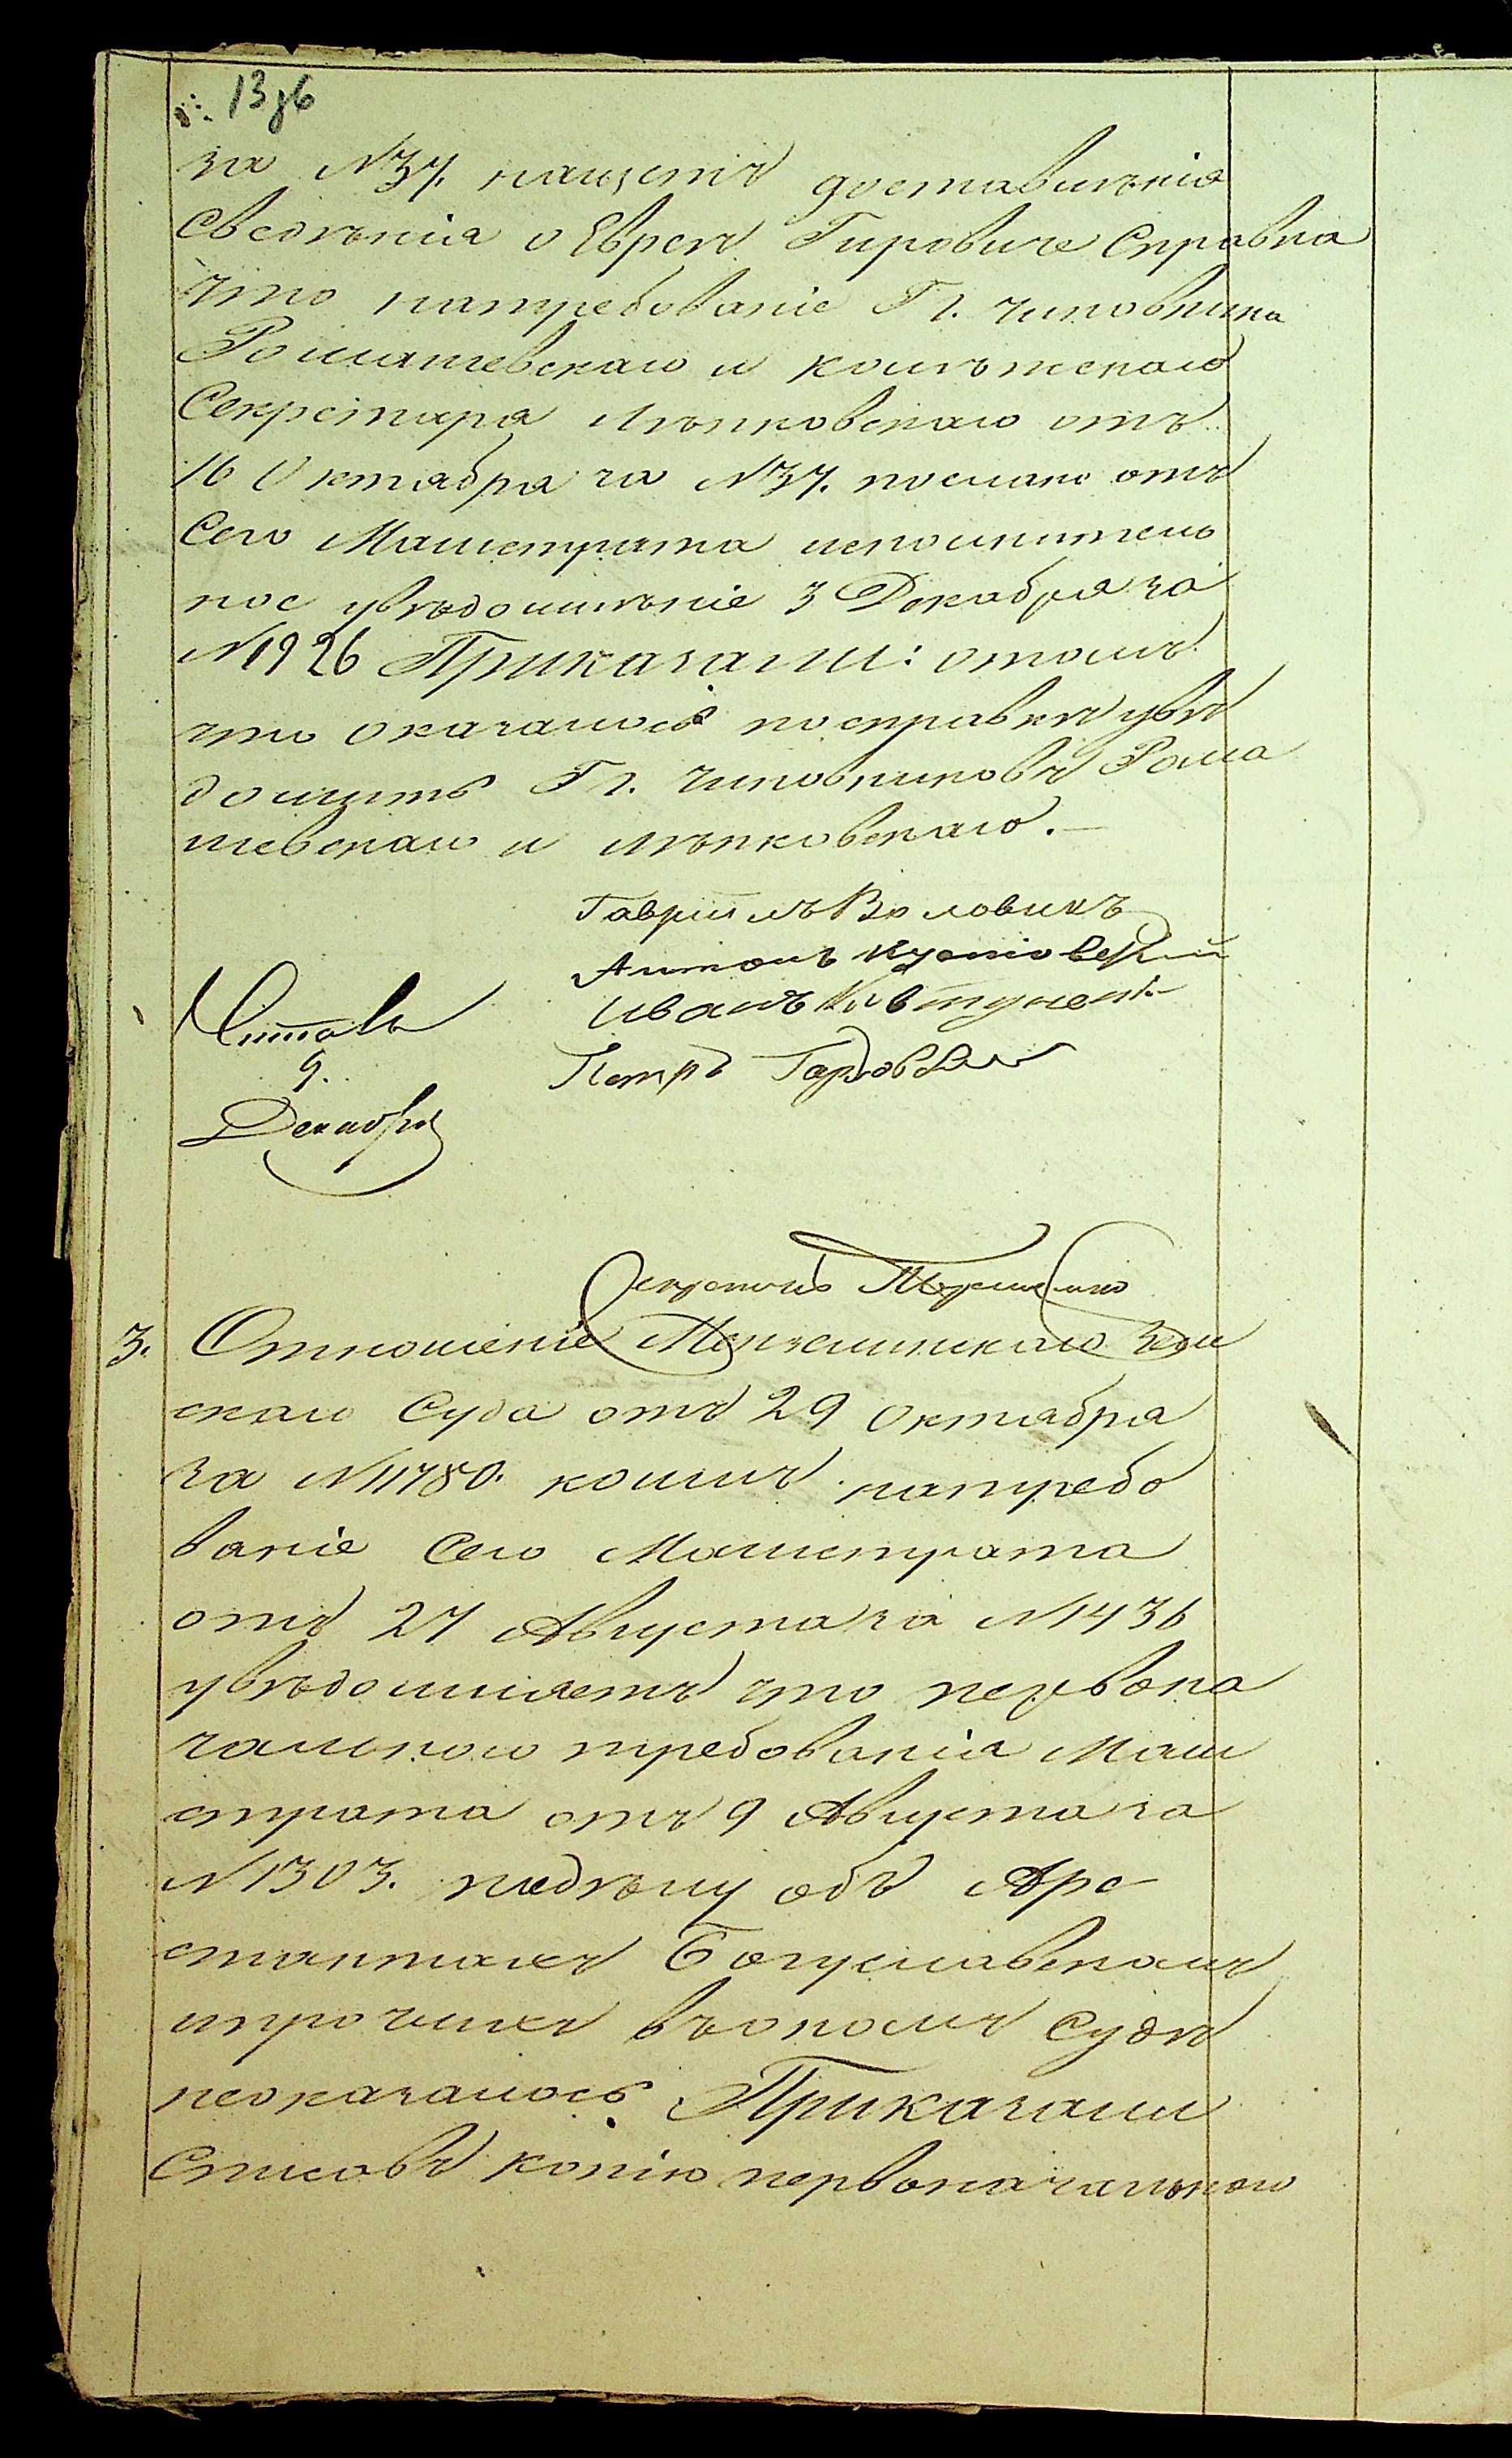 13 зв
за №37. нащетъ доставленія
сведенія о Евреѣ Гировиче Справка
что натребованіе Гг. чиновника
Ромашевскаго и колѣжскаго
Секретаря Лѣпковскаго отъ
16 Октября за №37. послано отъ
Сего Магистрата исполнитель
ное увѣдомлѣніе 3 Декабря за
№1926 Приказали: отомъ
что оказалось посправкѣ увѣ
домить Гг. чиновниковъ Рома
шевскаго и Лѣпковскаго.
Гавріилъ Воловикъ
Антонъ
Иванъ
Петръ
Читалъ
9.
Декабря
Секретарь
3. Отношеніе зем
скаго Суда отъ 29 Октября
за №11780. коимъ натребо
ваніе Сего Магистрата
отъ 27 Августа за №1436
увѣдомляетъ что первона
чальнаго требованія Маги
страта отъ 9 Августа за
№1303. подѣлу объ Аре
стантахъ Богуславскомъ
ипрочихъ вѣономъ Судѣ
неоказалось Приказали
Списавъ копію первоначальнаго